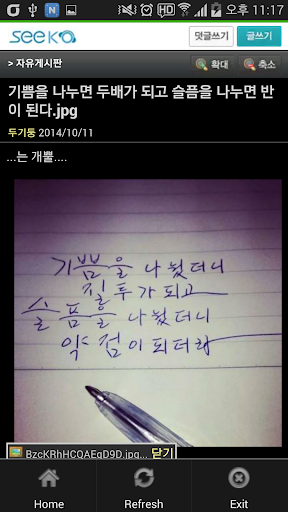 오후 11:17
seeko
덧글쓰기 글쓰기
> 자유게시판 확대 축소
기쁨을 나누면 두배가 되고 슬픔을 나누면 반
이 된다.jpg
두기둥 2014/10/11
...는 개뿔....
기쁨을 나눴더니
질투가 되고
슬픔을 나눴더니
약점이 되더라
BzcKRhHCQAEgD9D.jpg... 닫기
Home Refresh Exit